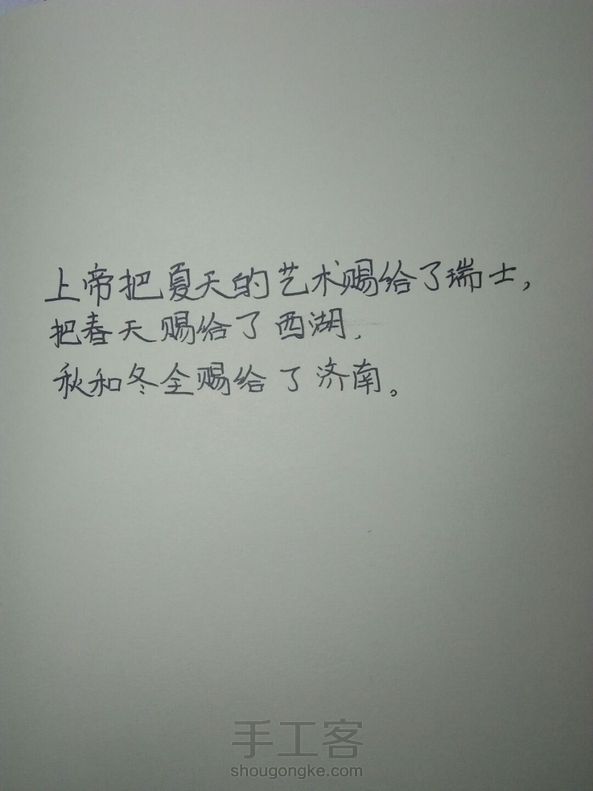 上帝把夏天的艺术赐给了瑞士,
把春天赐给了西湖,
秋和冬全赐给了济南。
手工客
shougongke.com